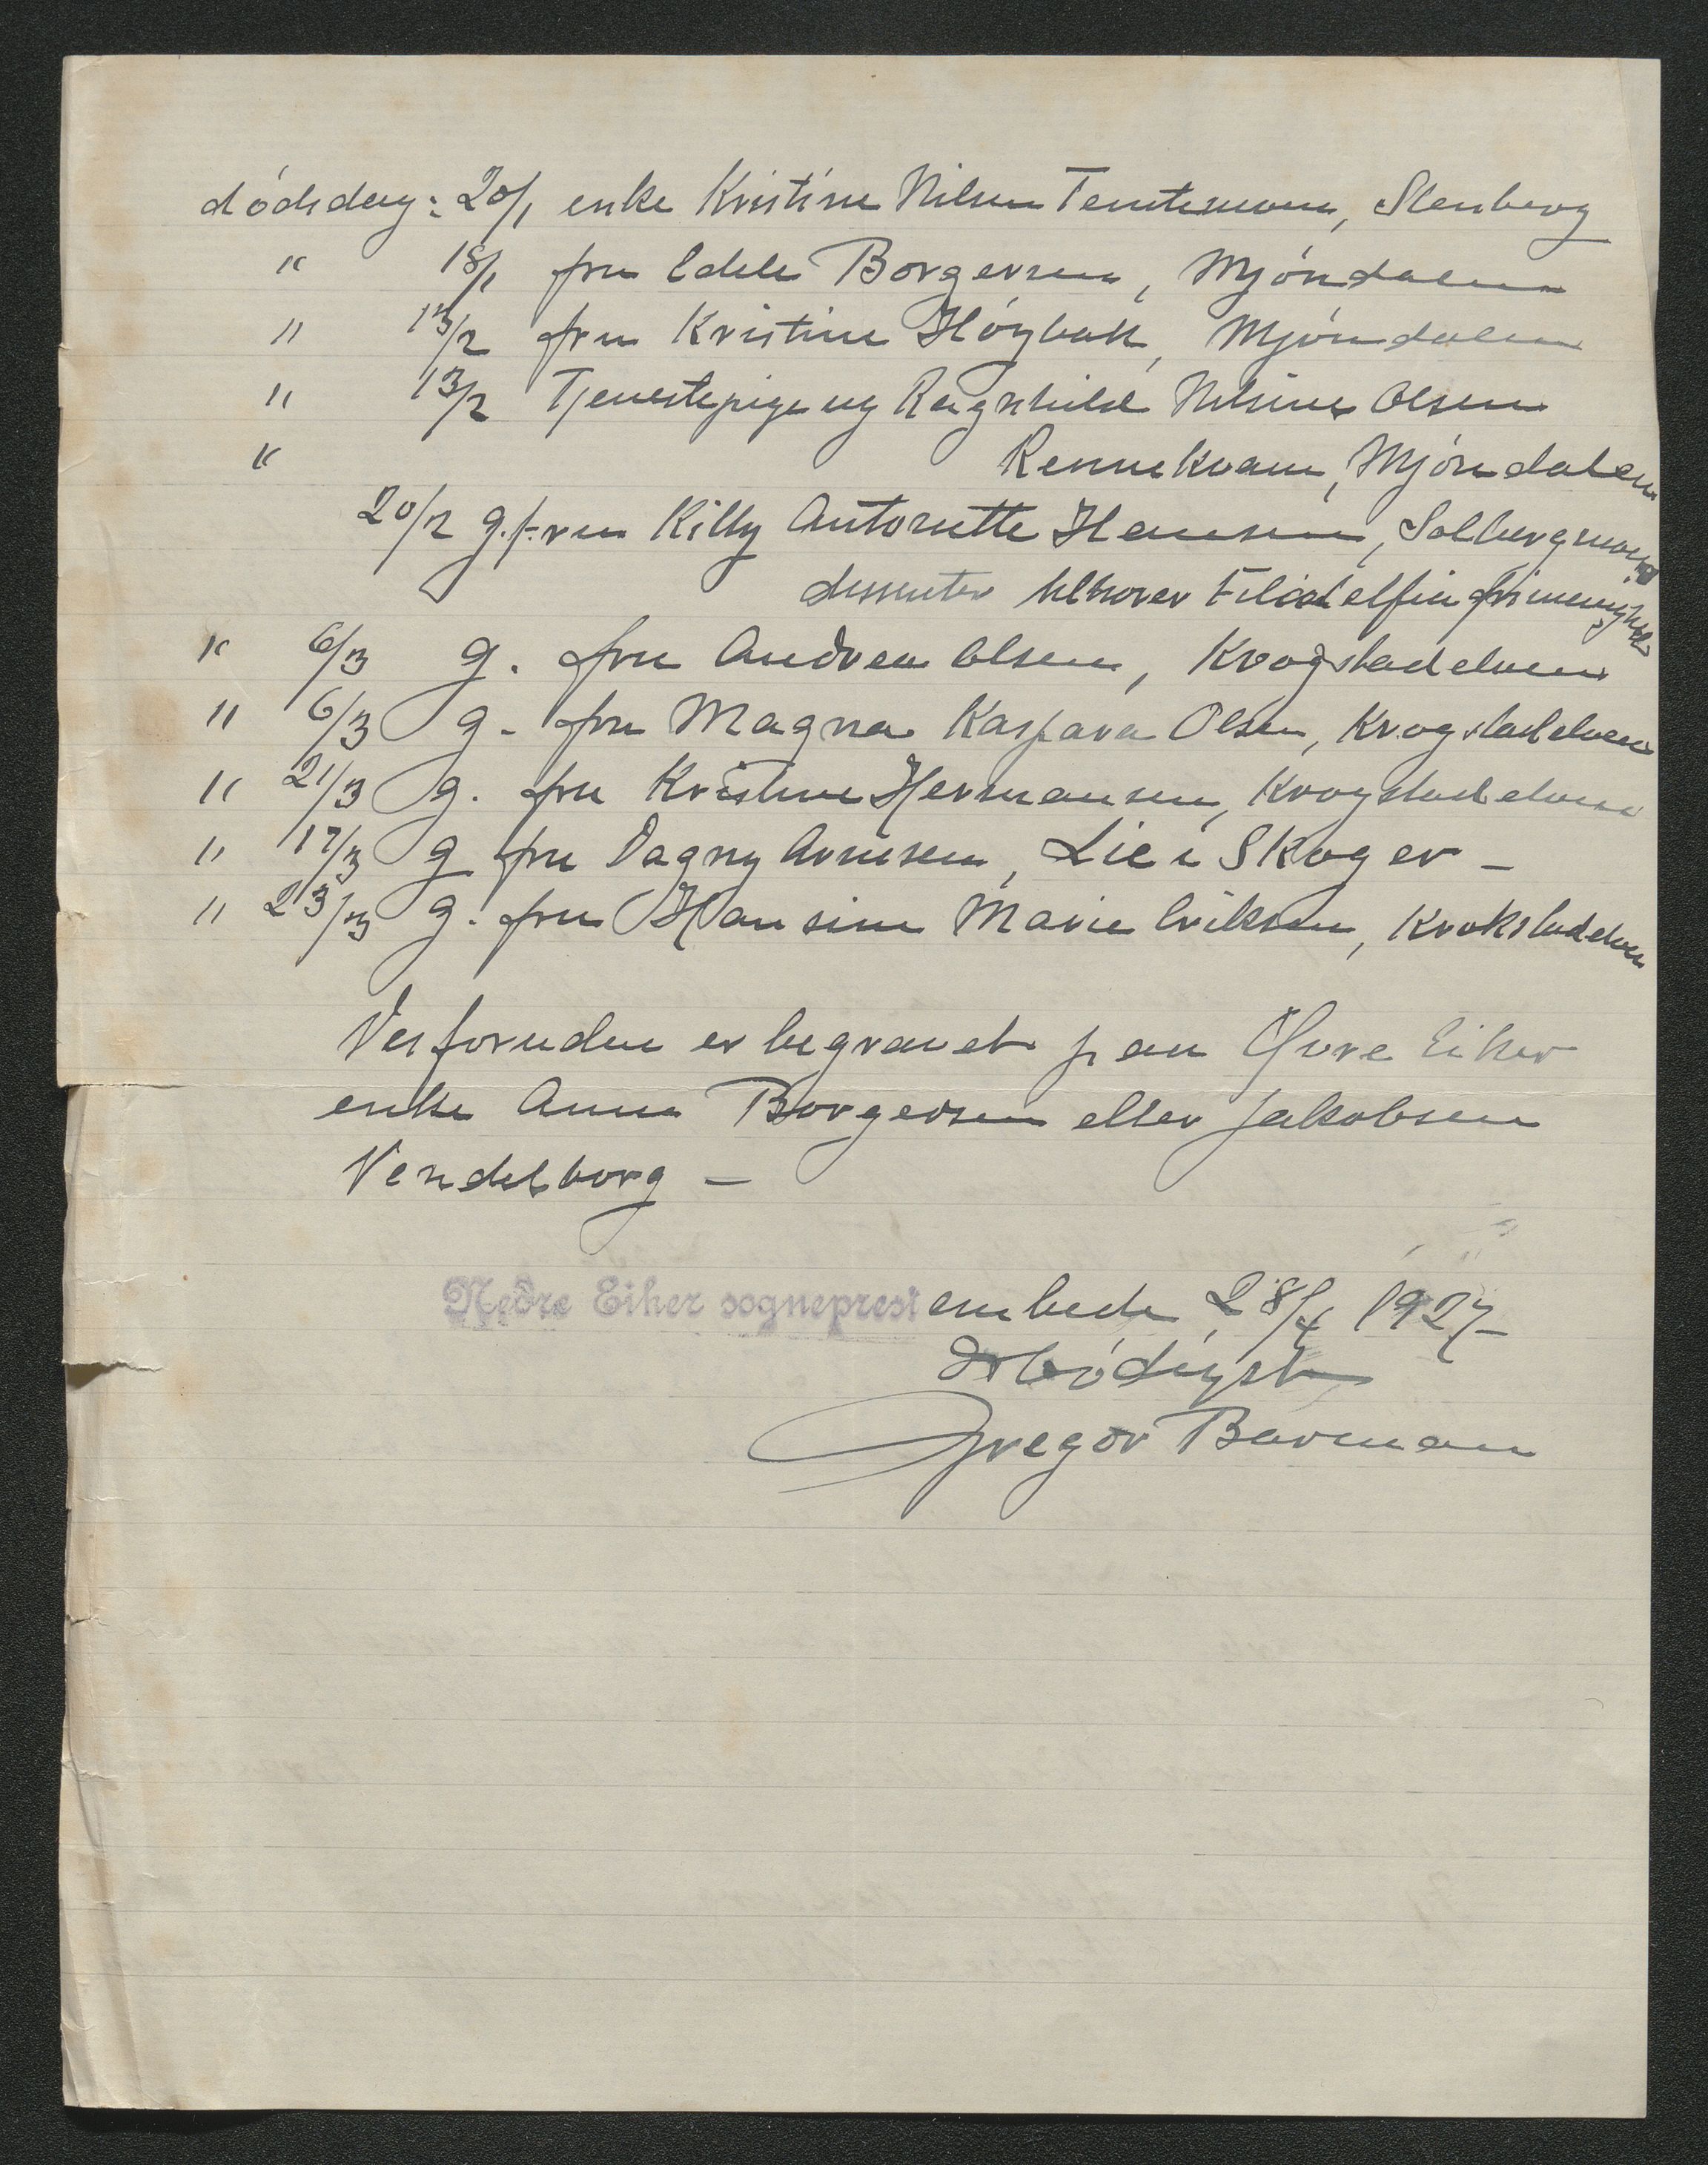 dödsdag: 20/1 enke Kristine Nilsen Temtemoen, Stenberg
" 18/1 fru Edele Borgersen, Mjöndalen
" 13/2 fru Kristine Höybak, Mjöndalen
" 13/2 Tjenestepige ug Ragnhild Nilsine Olsen
" Rennekvam, Mjöndalen
20/2 g. fru Killy Antonette Hansen, Solbergmoen
dissenter tilhører Filadelfia frimenighet
" 6/3 g. fru Andrea Olsen, Krogstadelven
" 6/3 g. fru Magna Kaspara Olsen, Krogstadelven
" 21/3 g. fru Kristine Hermansen, Krogstadelven
" 17/3 g fru Dagny Arnesen, Lie i Skoger –
" 23/3 g. fru Hansine Marie Eriksen, Krokstadelven
Desforuden er begravet paa Øvre Eiker
enke Anne Borgersen eller Jakobsen
Vendelborg –
Nedre Eiker sogneprest embede, 28/4 1927
Ærbödigst
Gregor Borman